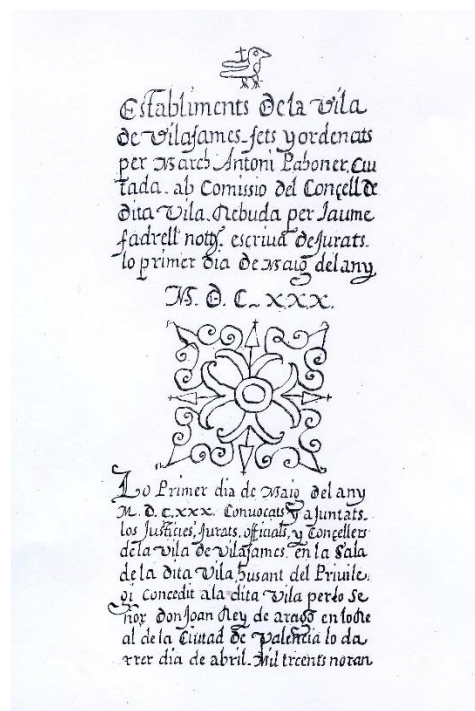 Establiments dela vila
de vilafames. fets y ordenats
per March Antoni Paboner. Ciu
tada. ab Comissio del Conçell de
dita vila. Rebuda per Jaume
fadrell noty. escriva de Jurats.
lo primer dia de Maig del any
M. D. C. XXX.
Lo Primer dia de Maig del any
M. D. C. XXX. Convocats y ajuntats.
los Justicies, Jurats. officials, y Concellers
dela vila de vilafames. en la Sala
de la dita vila, husant del Privile.
gi Concedit ala dita vila perlo Se
ñor don Joan Rey de arago en lo Re
al de la Ciutad de valencia lo da
rrer dia de abril. Mil trcents noran